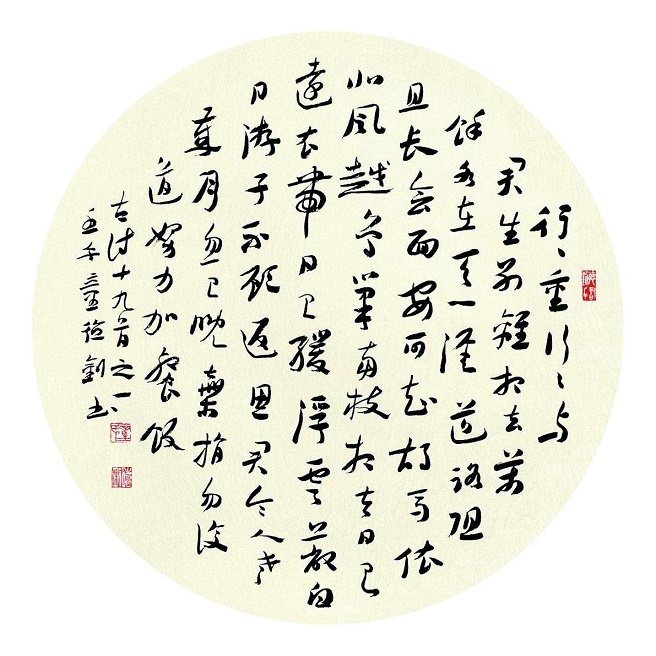 行、重行、与
君生别離相去萬
餘各在天一涯道路阻
且长会面安可知胡馬依
北風越鸟巢南枝相去日已
遠衣帶日已緩浮雲蔽白
日游子不顧返思君令人老
歲月忽已晚棄捐勿復
道努力加餐飯
古诗十九首之一
壬午書